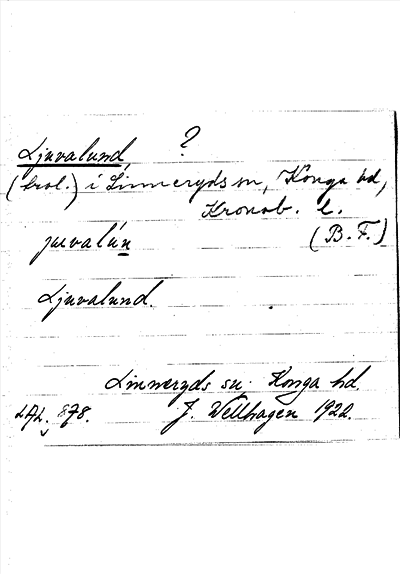 Ljuvalund, ?
(trol.) i Linneryds sn, Konga hd,
Kronob. l.
(B. F.)
juvalún
Ljuvalund.
Linneryds sn. Konga hd.
LAL. 878. J. Wellhagen 1922.